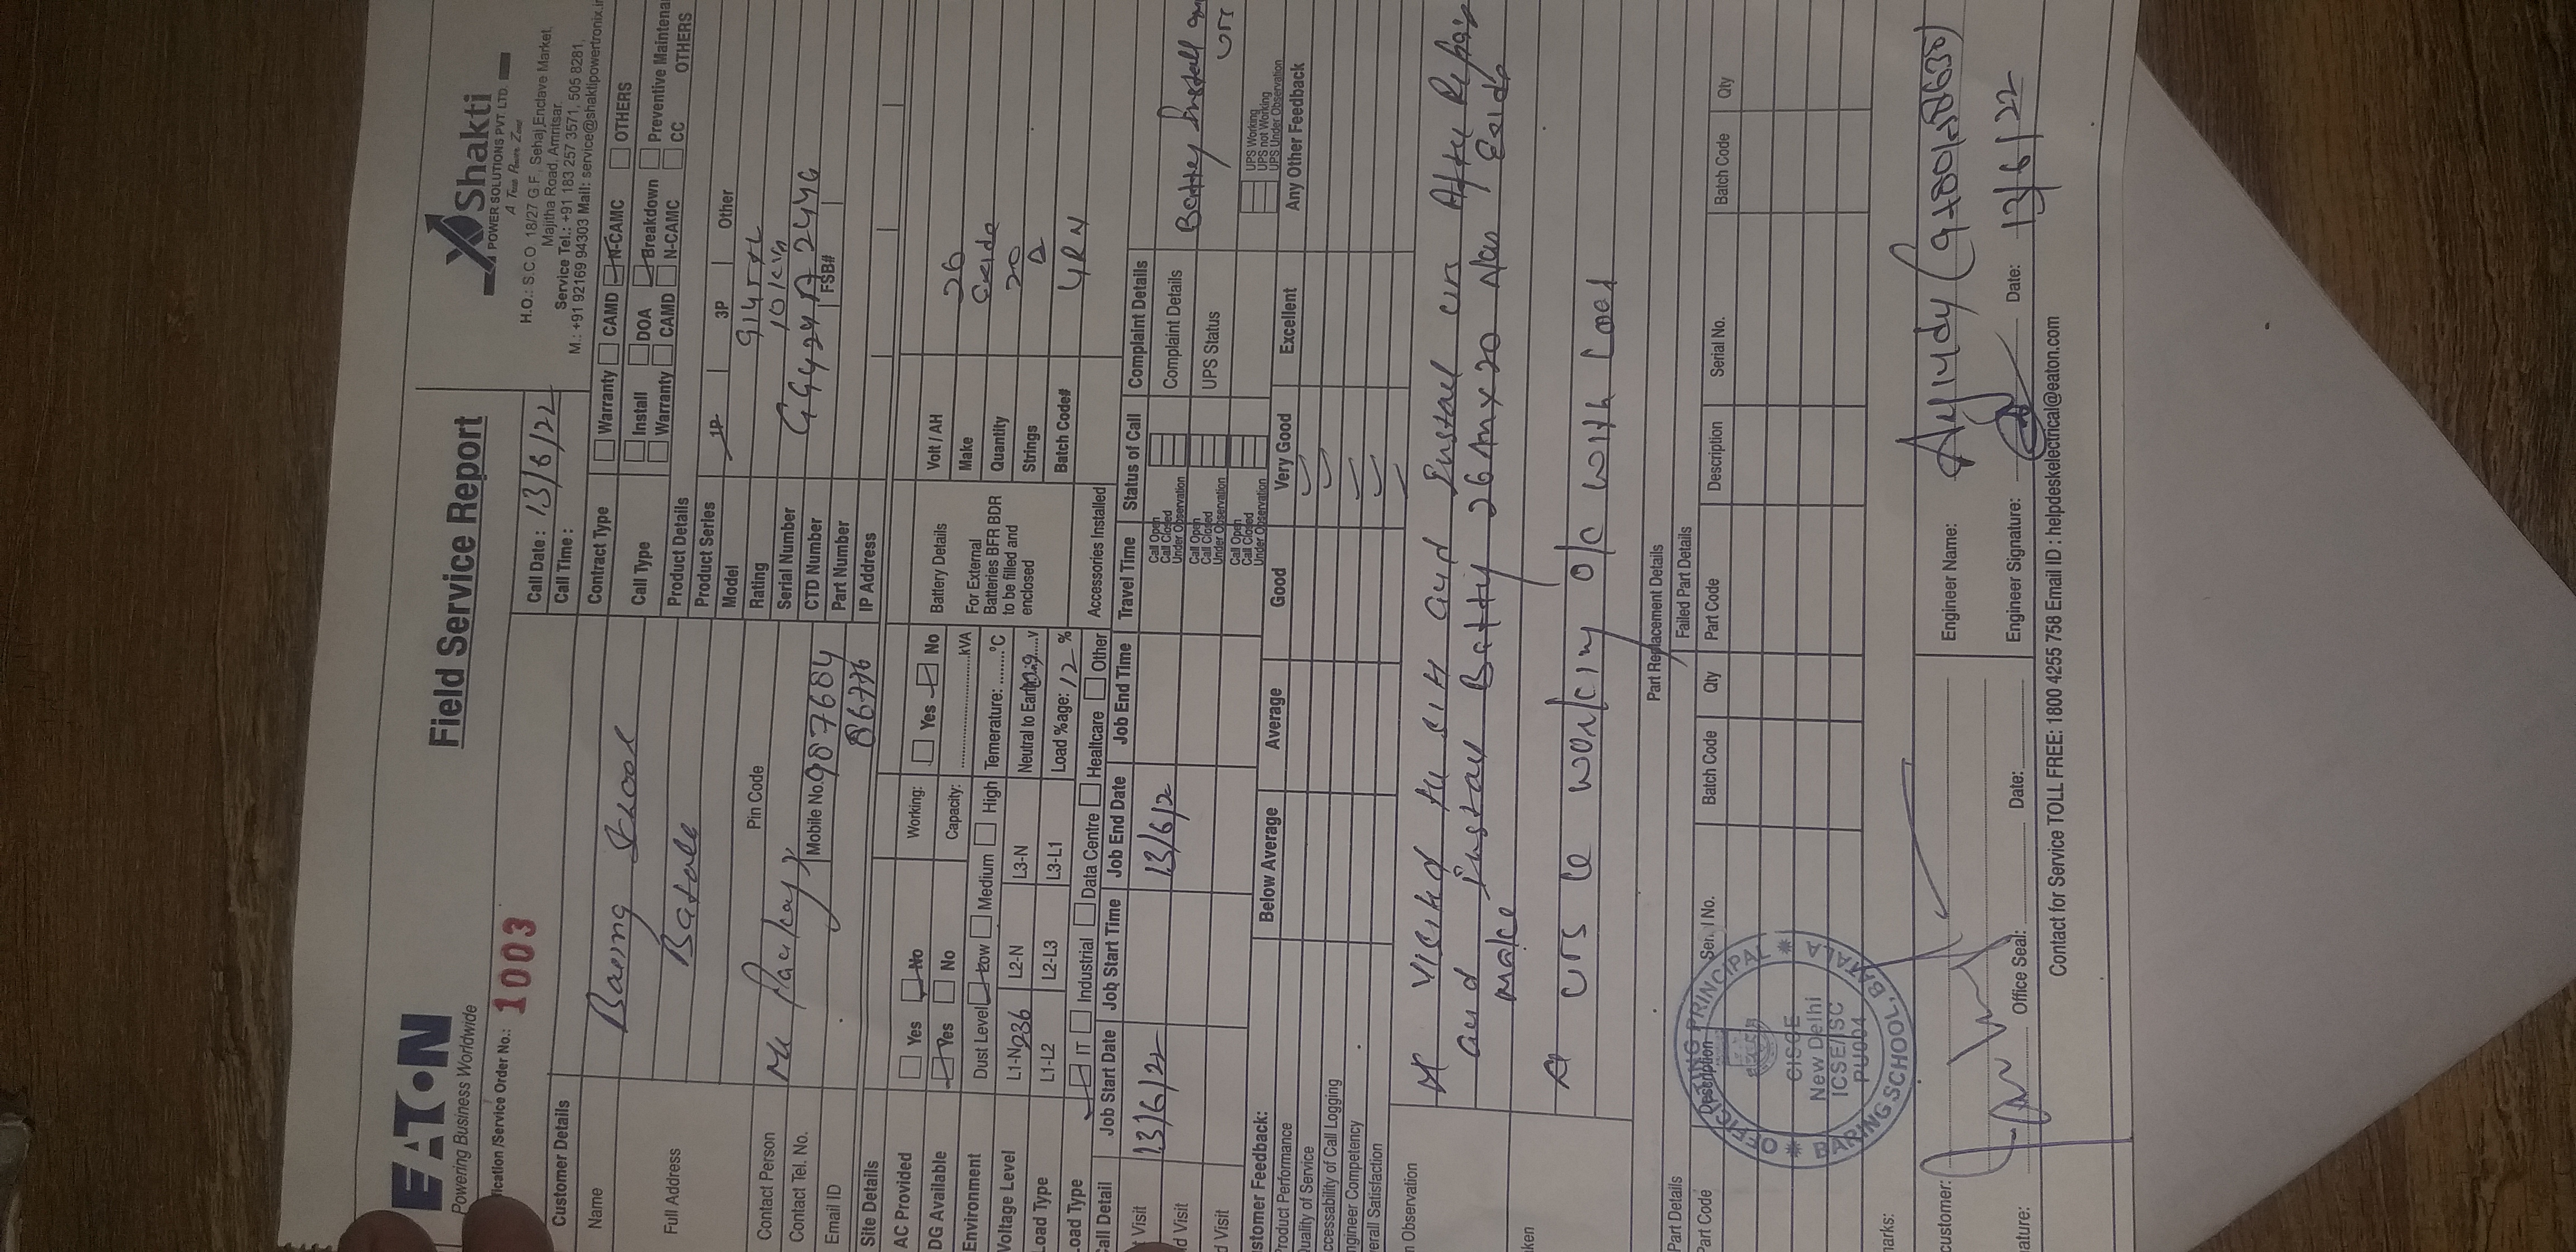 EATON
Powering Business Worldwide
Field Service Report
Shakti
POWER SOLUTIONS PVT. LTD.
A True Power Zone
H.O.: S.C.O. 18/27 G.F., Sehaj Enclave Market,
Majitha Road, Amritsar.
Service Tel.: +91 183 257 3571, 505 8281,
M.: +91 92169 94303 Mail: service@shaktipowertronix.in
fication /Service Order No.: 1003
Call Date : 13/6/22
Call Time :
Customer Details
Name Baring School
Full Address Batala
Pin Code
Contact Person Mr
Contact Tel. No. Mobile No. 987684
86776
Email ID
Contract Type Warranty CAMD N-CAMC OTHERS
Call Type Install DOA Breakdown Preventive Maintena
Warranty CAMD N-CAMC CC OTHERS
Product Details
Product Series 1P 3P Other
Model
Rating 10 KVA
Serial Number
CTD Number FSB#
Part Number
IP Address
Site Details
AC Provided Yes No Working: Yes No
DG Available Yes No Capacity: kVA
Environment Dust Level Low Medium High Temerature: ........°C
Voltage Level L1-N 236 L2-N L3-N Neutral to Earth 0.9 v
Load Type L1-L2 L2-L3 L3-L1 Load %age: 12 %
Load Type IT Industrial Data Centre Healtcare Other
Battery Details
For External
Batteries BFR BDR
to be filled and
enclosed
Volt / AH 26
Make Exide
Quantity 20
Strings
Batch Code#
Accessories Installed
Call Detail Job Start Date Job Start Time Job End Date Job End Time Travel Time Status of Call Complaint Details
t Visit 13/6/22 13/6/2
Call Open
Call Closed
Under Observation
d Visit
Call Open
Call Closed
Under Observation
d Visit
Call Open
Call Closed
Under Observation
Complaint Details Battey Install
UPS Status UPS
UPS Working
UPS not Working
UPS Under Observation
stomer Feedback: Below Average Average Good Very Good Excellent Any Other Feedback
Product Performance
Quality of Service
ccessability of Call Logging
ngineer Competency
erall Satisfaction
n Observation
Visited the site and Install UPS After Repair
and Install Batty 26 x 20 Nos Exide
make
ken
UPS is working o/c with Load
Part Replacement Details
Part Details Failed Part Details
Part Code Description Serial No. Batch Code Qty Part Code Description Serial No. Batch Code Qty
OFFICIATING PRINCIPAL
CISCE
New Delhi
ICSE/ISC
PU004
BARING SCHOOL, BATALA
marks:
customer:
Engineer Name:
ature: Office Seal: Date:
Engineer Signature: Date: 13/6/22
Contact for Service TOLL FREE: 1800 4255 758 Email ID : helpdeskelectrical@eaton.com